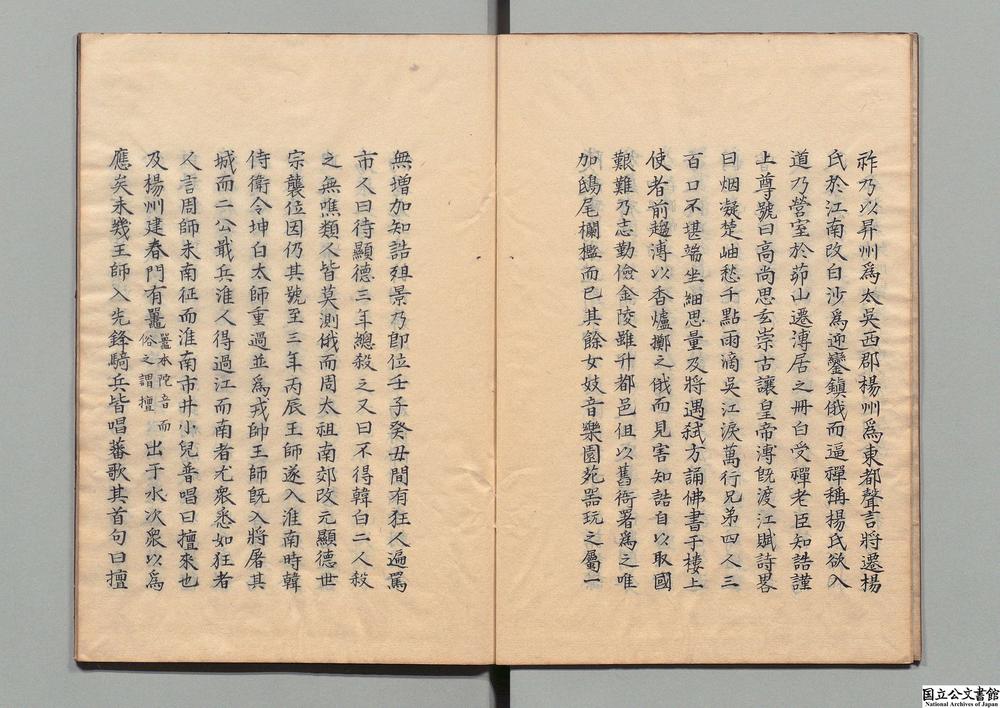 祚乃以昇州爲太吳西郡楊州爲東都聲言將遷楊
氏於江南改白沙爲迎鑾鎮俄而逼禪稱楊氏欲入
道乃營室於茆山遷溥居之冊白受禪老臣知誥謹
上尊號曰高尚思玄崇古讓皇帝溥旣渡江賦詩畧
曰烟凝楚岫愁千點雨滴吳江淚萬行兄弟四人三
百口不堪端坐細思量及將遇弑方誦佛書于樓上
使者前趨溥以香爐擲之俄而見害知誥自以取國
艱難乃志勤儉金陵雖升都邑但以舊衙署爲之唯
加鴟尾欄檻而已其餘女妓音樂園苑器玩之屬一
無增加知誥殂景乃卽位壬子癸丑間有狂人遍罵
市人曰待顯德三年總殺之又曰不得韓白二人殺
之無噍類人皆莫測俄而周太祖南郊改元顯德世
宗襲位因仍其號至三年丙辰王師遂入淮南時韓
侍衛令坤白太師重過並爲戎帥王師旣入將屠其
城而二公戢兵淮人得過江而南者尤衆悉如狂者
人言周師未南征而淮南市井小兒普唱曰擅來也
及楊州建春門有鼉鼉本陀音而俗之謂擅出于水次衆以爲
應矣未幾王師入先鋒騎兵皆唱蕃歌其首句曰擅
国立公文書館
National Archives of Japan